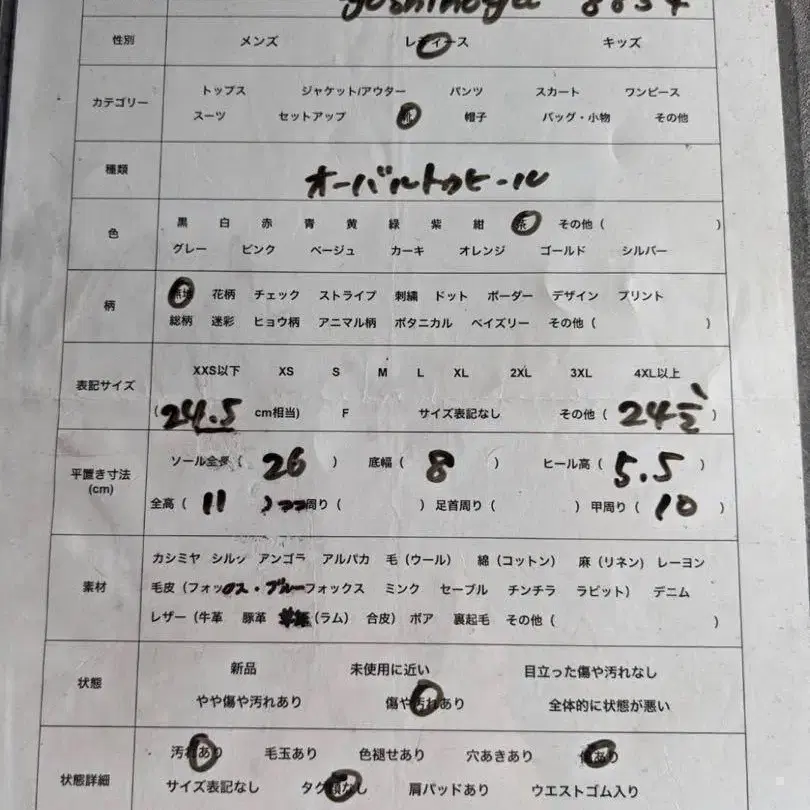 yoshinoya 8634
性別 メンズ レディース キッズ
カテゴリー
トップス ジャケット/アウター パンツ スカート ワンピース
スーツ セットアップ 靴 帽子 バッグ・小物 その他
種類 オーバルトゥヒール
色
黒 白 赤 青 黄 緑 紫 紺 茶 その他（ ）
グレー ピンク ベージュ カーキ オレンジ ゴールド シルバー
柄
無地 花柄 チェック ストライプ 刺繍 ドット ボーダー デザイン プリント
総柄 迷彩 ヒョウ柄 アニマル柄 ボタニカル ペイズリー その他（ ）
表記サイズ
XXS以下 XS S M L XL 2XL 3XL 4XL以上
（24.5 cm相当） F サイズ表記なし その他（ 24 ）
平置き寸法
(cm)
ソール全長（ 26 ） 底幅（ 8 ） ヒール高（ 5.5 ）
全高（ 11 ） 周り（ ） 足首周り（ ） 甲周り（ 10 ）
素材
カシミヤ シルク アンゴラ アルパカ 毛（ウール） 綿（コットン） 麻（リネン） レーヨン
毛皮（フォックス・ブルーフォックス ミンク セーブル チンチラ ラビット） デニム
レザー（牛革 豚革 （ラム） 合皮） ボア 裏起毛 その他（ ）
状態
新品 未使用に近い 目立った傷や汚れなし
やや傷や汚れあり 傷や汚れあり 全体的に状態が悪い
状態詳細
汚れあり 毛玉あり 色褪せあり 穴あきあり 傷あり
サイズ表記なし タグ類なし 肩パッドあり ウエストゴム入り